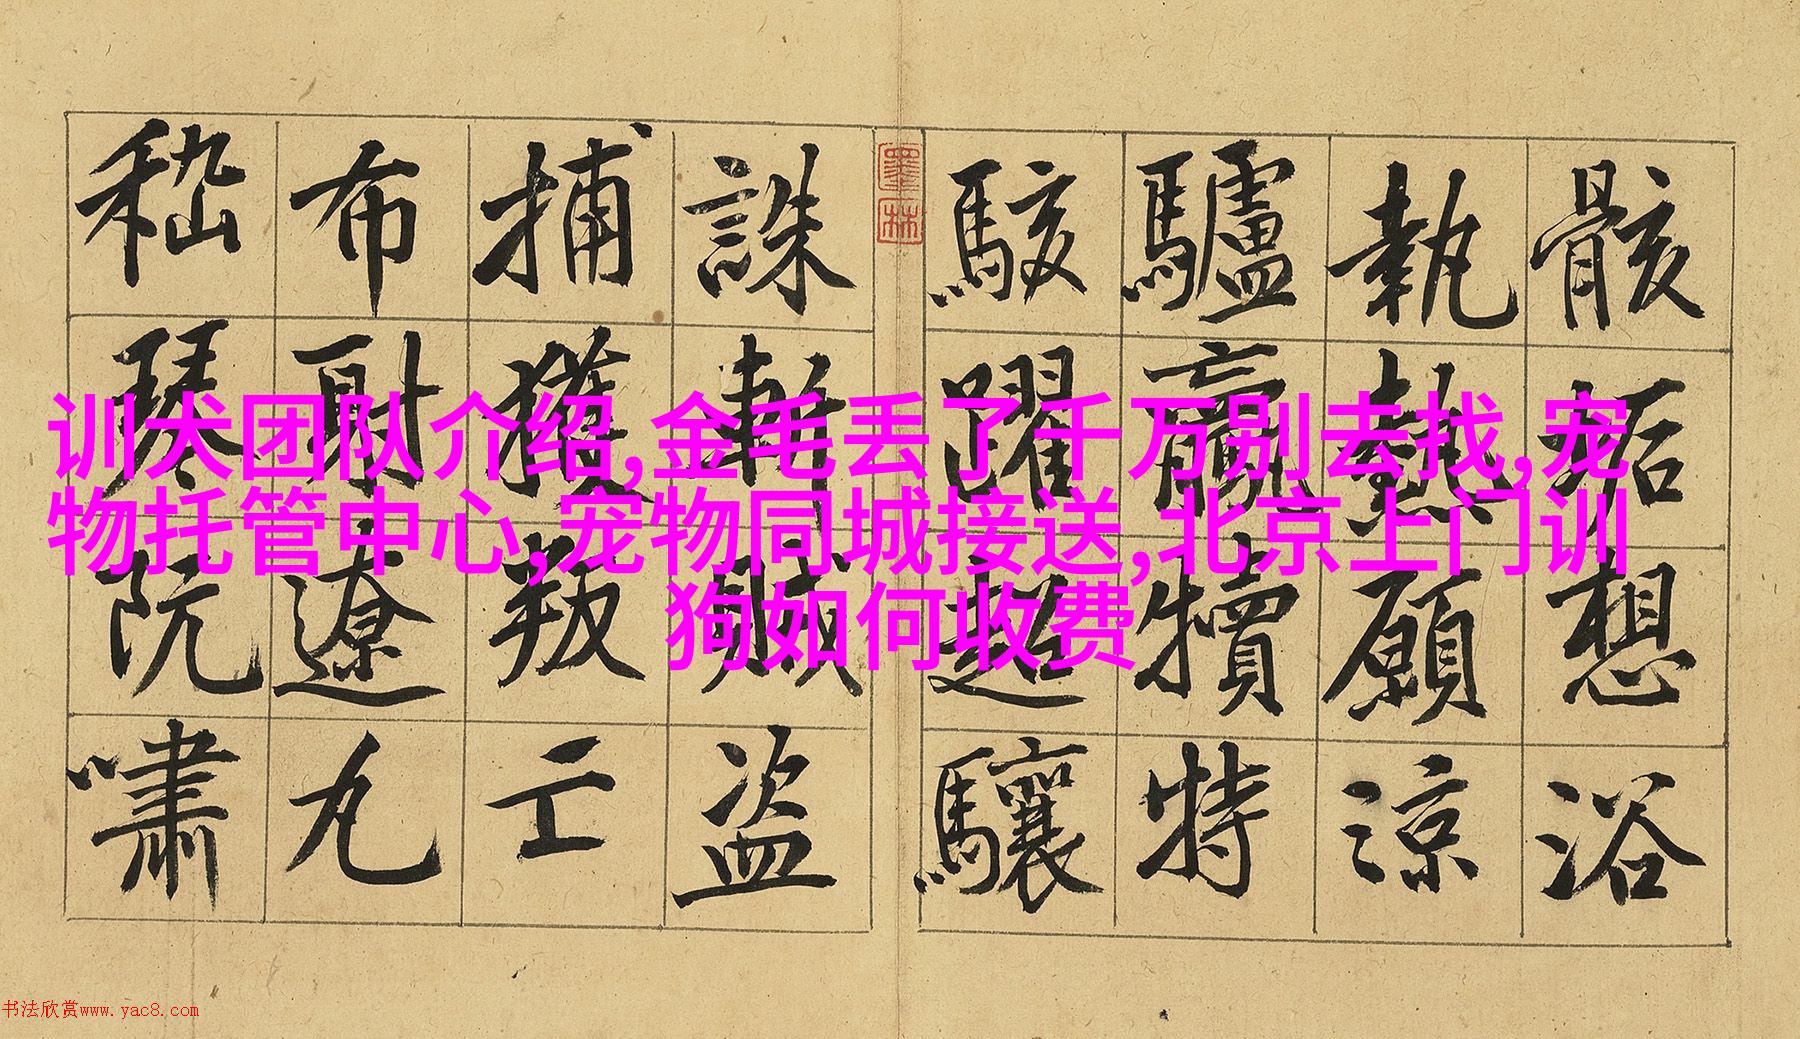 骸垢想浴
執熱願涼
驢犢特
駭躍超驤
墨林
誅斬賊盜
捕獲叛亡
布射遼丸
嵇琴阮嘯
训犬团队介绍,金毛丢了千万别去找,宠
物托管中心,宠物同城接送,北京上门训
狗如何收费
书法欣赏www.yac8.com